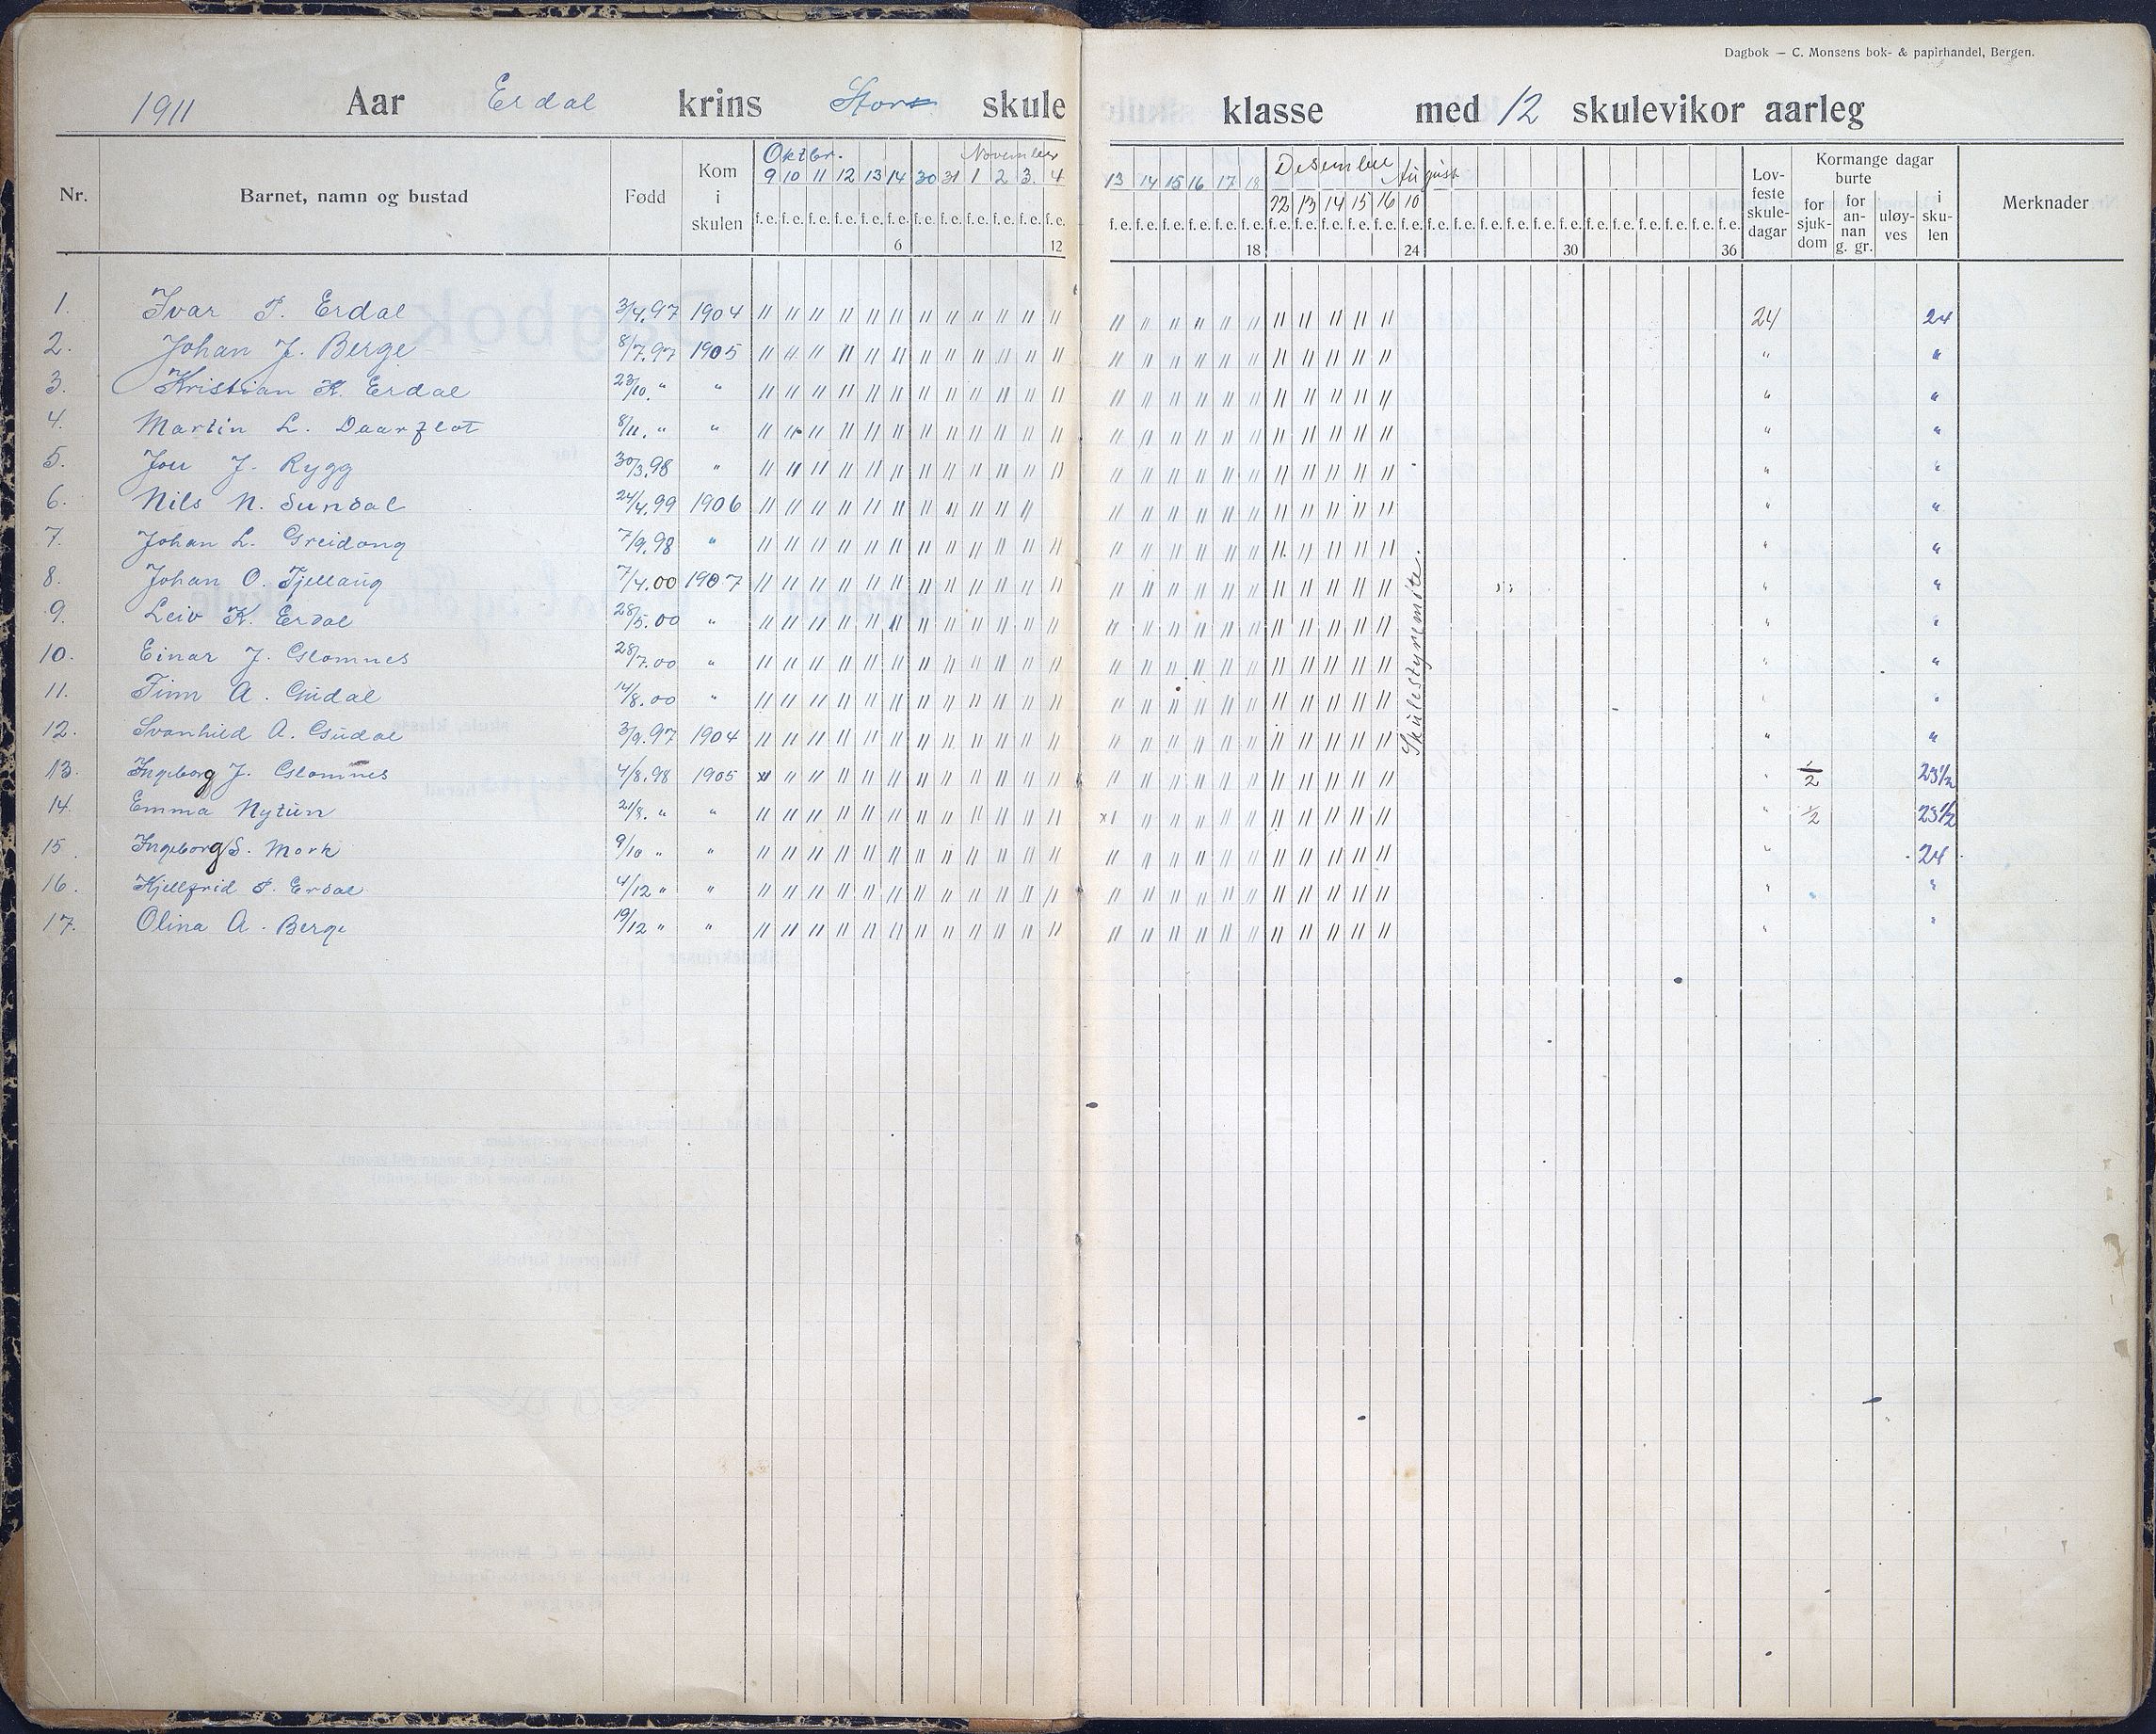 Dagbok — C. Monsens bok- & papirhandel, Bergen.
1911 Aar Erdal krins Stor skule klasse med 12 skulevikor aarleg
Nr. Barnet, namn og bustad Fødd Kom i skulen Oktbr. November Desember August Lov-feste skule-dagar Kormange dagar burte for sjuk-dom for an-nan g. gr. uløy-ves i sku-len Merknader
9 10 11 12 13 14 30 31 1 2 3. 4 13 14 15 16 17 18
12 13 14 15 16 10
f. e. f. e. f. e. f. e. f. e. f. e. f. e. f. e. f. e. f. e. f. e. f. e. f. e. f. e. f. e. f. e. f. e. f. e. f. e. f. e. f. e. f. e. f. e. f. e. f. e. f. e. f. e. f. e. f. e. f. e. f. e. f. e. f. e. f. e. f. e. f. e.
6 12 18 24 30 36
1. Ivar P. Erdal 3/4.97 1904 24 24
2. Johan J. Berge 8/7.97 1905 " "
3. Kristian K. Erdal 23/10. " " " "
4. Martin L. Daarflot 8/11. " " " "
5. Jon J. Rygg 30/3.98 " " "
6. Nils N. Sundal 24/4.99 1906 " "
7. Johan L. Greidong 7/9.98 " " "
8. Johan O. Tjellaug 7/4.00 1907 " "
9. Leiv K. Erdal 28/5.00 " " "
10. Einar J. Glomnes 28/7.00 " " "
11. Finn A. Gudal 14/8.00 " " "
12. Svanhild A. Gudal 3/9.97 1904 " "
13. Ingeborg J. Glomnes 4/8.98 1905 " 1/2 23 1/2
14. Emma Nytun 21/8. " " " 1/2 23 1/2
15. Ingeborg S. Mork 9/10 " " " 24
16. Kjellfrid P. Erdal 4/12 " " " "
17. Olina A. Berge 19/12 " " " "
Skulestyremöte.